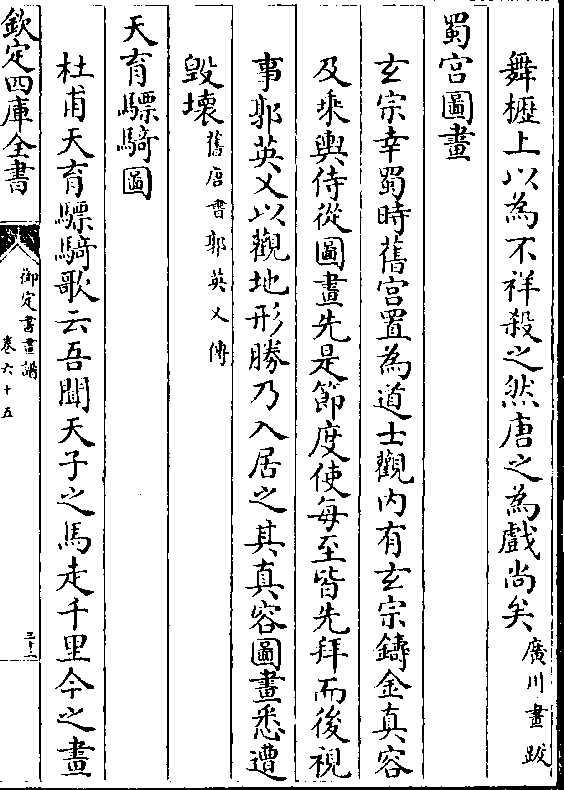 舞櫪上以為不祥殺之然唐之為戲尚矣廣川畫跋
蜀宫圖畫
玄宗幸蜀時舊宫置為道士觀内有玄宗鑄金真容
及乘輿侍從圖畫先是節度使每至皆先拜而後視
事郭英乂以觀地形勝乃入居之其真容圖畫悉遭
毁壞舊唐書郭英乂傳
天育驃騎圖
杜甫天育驃騎歌云吾聞天子之馬走千里今之畫
欽定四庫全書
御定書畫譜
卷六十五
三十二